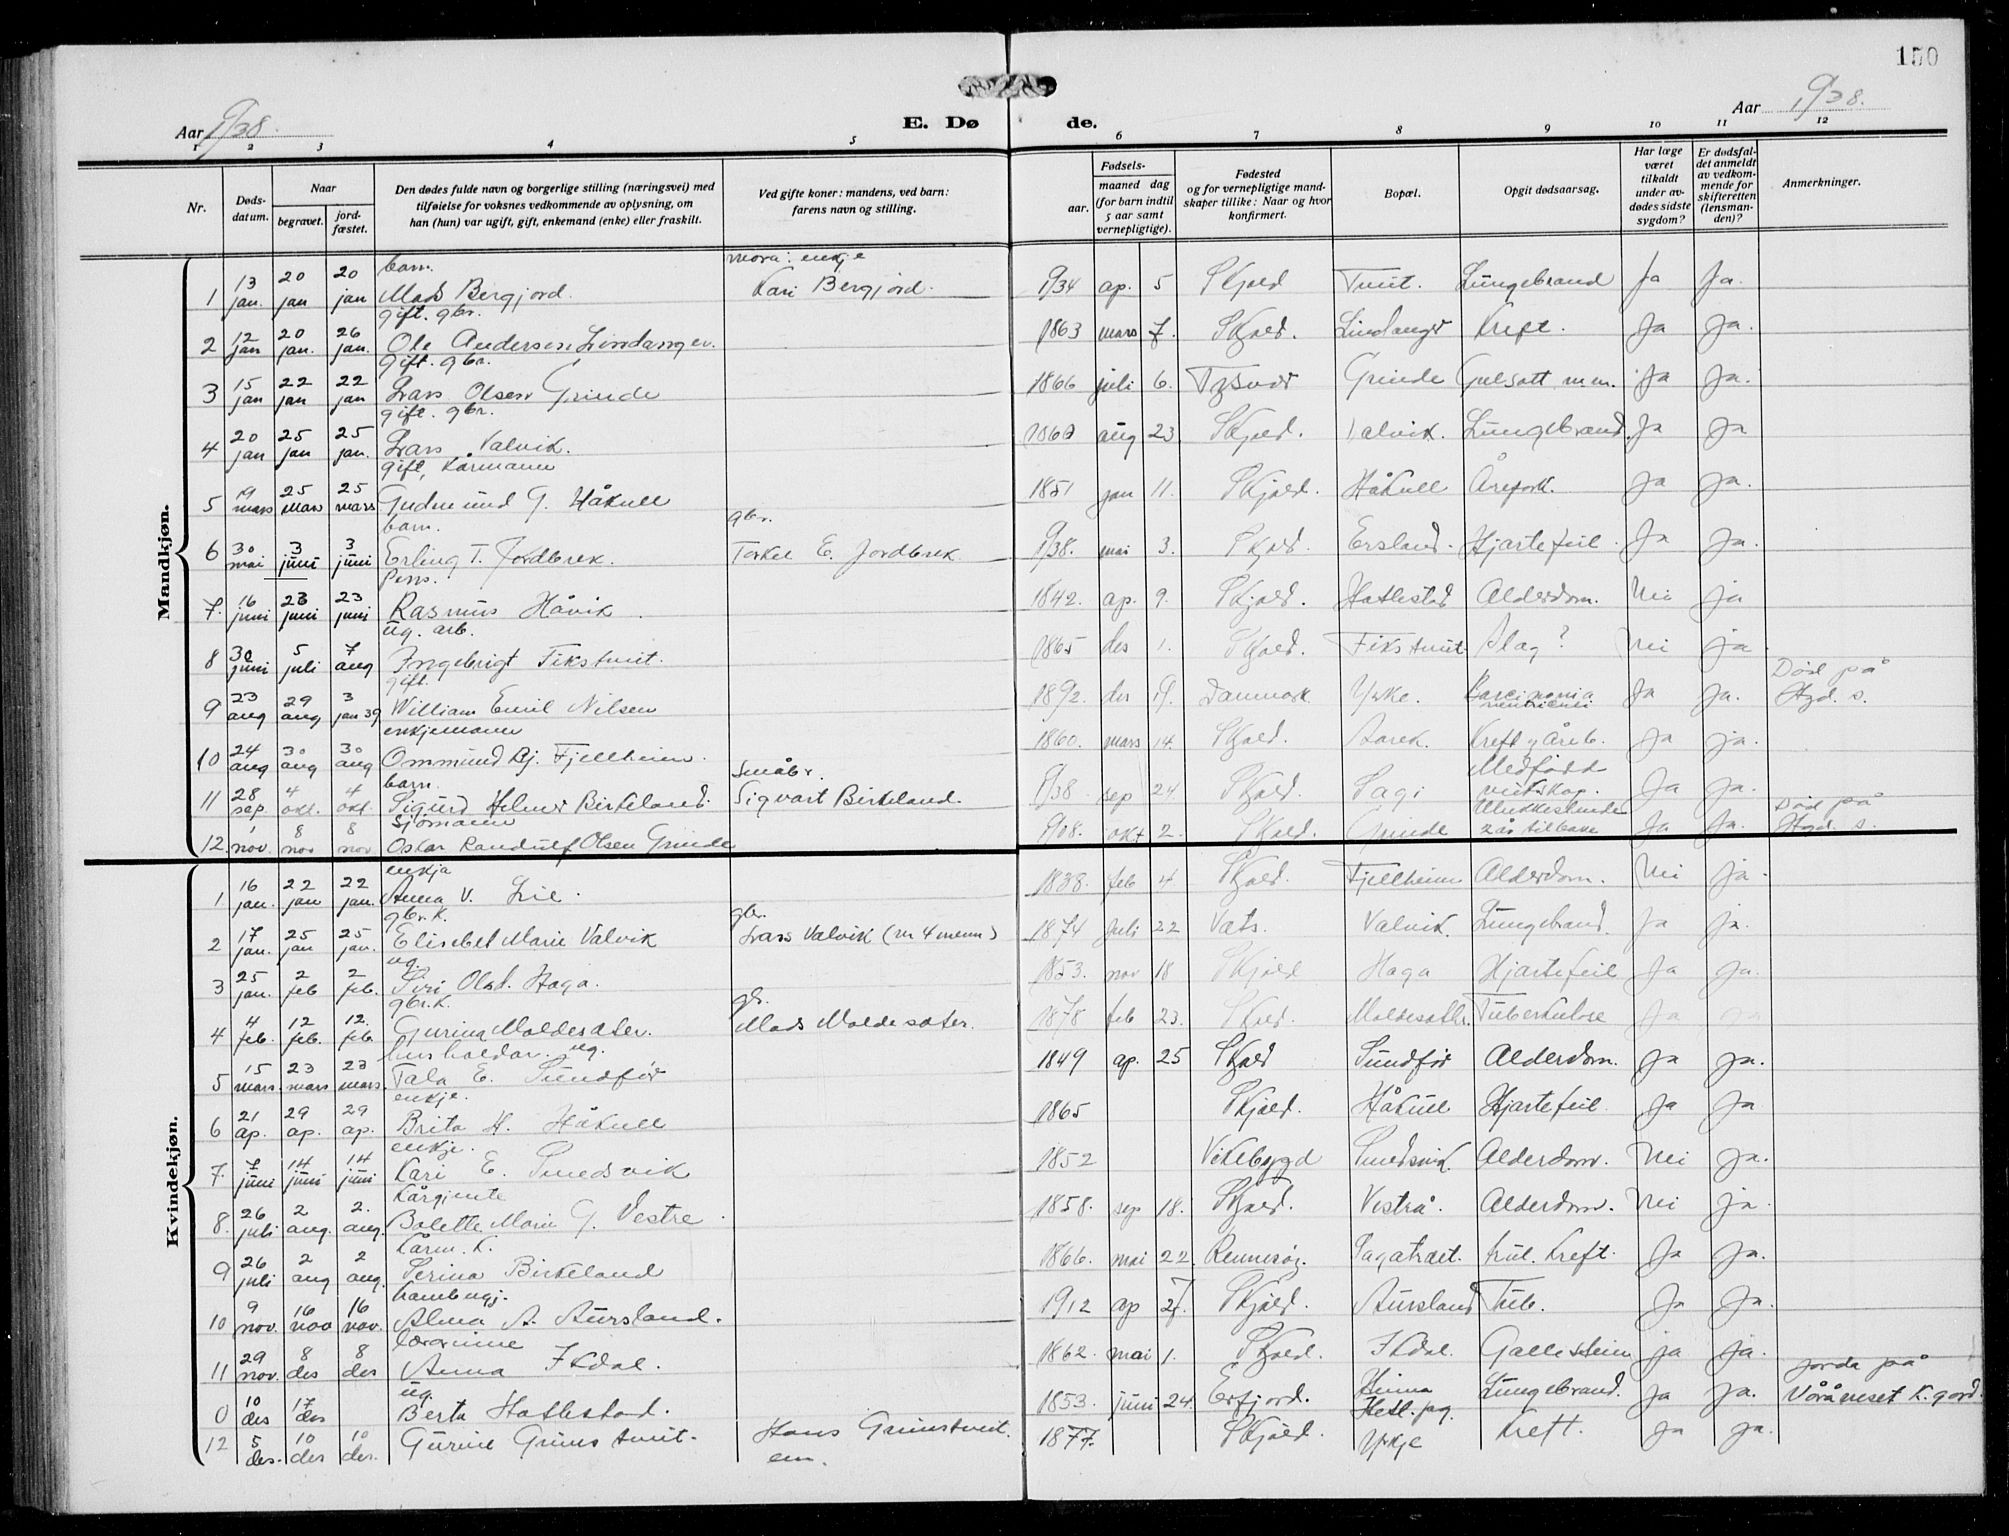 150
Aar 1938.
E. Døde.
Aar 1938.
1 2 3 4 5 6 7 8 9 10 11 12
Nr.
Døds-datum.
Naar
begravet.
jord-fæstet.
Den dødes fulde navn og borgerlige stilling (næringsvei) med tilføielse for voksnes vedkommende av oplysning, om han (hun) var ugift, gift, enkemand (enke) eller fraskilt.
Ved gifte koner: mandens, ved barn: farens navn og stilling.
Fødsels-
aar.
maaned dag (for barn indtil 5 aar samt vernepligtige).
Fødested og for vernepligtige mandskaper tillike: Naar og hvor konfirmert.
Bopæl.
Opgit dødsaarsag.
Har læge været tilkaldt under avdødes sidste sygdom?
Er dødsfaldet anmeldt av vedkommende for skifteretten (lensmanden)?
Anmerkninger.
Mandkjøn.
1 13 jan. 20 jan 20 jan barn. Mads Bergjord. mora: enkje Kari Bergjord. 1934 ap. 5 Skjold Tveit. Lungebrand Ja Ja.
2 12 jan 20 jan. 26 jan. gift. gbr. Ole Andersen Lindanger. 1863 mars 7. Skjold. Lindanger Kreft. Ja Ja.
3 15 jan 22 jan 22 jan gift. gbr. Lars Olsen Grinde 1866 juli 6. Tysvær Grinde Gulsott m.m. Ja Ja.
4 20 jan 25 jan 25 jan. gift. gbr. Lars Valvik. aug 23 Skjold. Valvik. Lungebrand. Ja Ja
5 19 mars 25 mars 25 mars gift, kårmann Gudmund G. Håkull 1851 jan 11. Skjold. Håkull Årefork. Ja Ja.
6 30 mai 3 juni 3 juni barn. Erling T. Jordbrek. gbr. Torkel E. Jordbrek 1938. mai 3. Skjold. Ersland. Hjartefeil. Ja Ja.
7. 16 juni 23 juni 23 juni pens. Rasmus Håvik 1842. ap. 9. Skjold. Hatlestad Alderdom. Nei ja
8 30 juni 5 juli 7 aug ug. arb. Ingebrigt Fikstveit. 1865 des 1. Skjold. Fikstveit Slag? Nei ja
9 23 aug 29 aug 3 jan 39 gift. William Emil Nilsen 1892. des 19. Danmark Yrke. Ja Ja. Død på Hgd. s.
10 24 aug 30 aug 30 aug enkjemann Ommund Bj. Fjellheim. 1860. mars 14. Skjold. Aarek. Kreft og Åreb. Ja ja.
11 28 sep. 4 okt. 4 okt. barn. Sigurd Helmer Birkeland. Småbr. Sigvart Birkeland. 1938 sep 24 Skjold. Sagi Medfødd veikskap. Ja Ja
12. 1 nov. 8 nov 8 nov sjømann Oskar Randulf Olsen Grinde 1908. okt 2. Skjold. Grinde Ulukkeshende 2 år tilbake Ja Ja. Død på Hgd. s.
Kvindekjøn.
1 16 jan. 22 jan 22 jan. enkja Anna V. Lie. 1838. feb 4 Skjold. Fjellheim Alderdom. Nei ja.
2 17 jan. 25 jan 25 jan. gbr.k. Elisabet Marie Valvik gbr. Lars Valvik (nr 4 menn) 1874 Juli 22 Vats. Valvik. Lungebrand. Ja ja.
3 25 jan. 2 feb 2 feb. ug. Siri Olsd. Haga. 1853. nov 18 Skjold Haga Hjartefeil Ja Ja.
4 4 feb. 12 feb. 12. feb. gbr.k. Gurina Moldesæter. gbr. Mads Moldesæter. 1878 feb 23. Skjold. Moldesæter. Tuberkulose Ja ja
5 15 mars. 23 mars 23 mars. husholdar. ug. Tala E. Sundfør 1849 ap. 25 Skjold Sundfør Alderdom. Ja Ja.
6 21 ap. 29 ap. 29 ap. enkje. Brita H. Håkull 1865 Skjold. Håkull Hjartefeil. Ja Ja
7. 7 juni 14 juni 14 juni enkje. Kari E. Smedsvik 1852 Vikebygd Smedsvik. Alderdom. Nei Ja.
8. 26 juli 2 aug. 2. aug. Kårgjente Bolette Marie G. Vestre 1858. sep 18. Skjold. Vestrå. Alderdom. Nei ja.
9 26 juli 2 aug 2 aug. Kårm. k. Serina Birkeland 1866. mai 22. Rennesøy. Sagatræet. Kreft. Ja Ja.
10 9 nov. 16 nov 16 nov. Alma A. Aursland. 1912 ap 27. Skjold. Aursland Tub. Ja Ja.
11 29 nov. 8 des 8 des Anna Ikdal. 1862. mai 1. Skjold. Ikdal. Gallestein ja ja.
0 10 des 17 des ug. Berta Hatlestad. 1853. juni 24. Erfjord. Hinna Lungebrand. Ja Ja. Jorda på Våråneset k. gard.
12 5 des. 10 des 10 des. Gurine Grimstveit. Hans Grimstveit. em. 1877. Skjold. Yrkje Kreft. Ja Ja.